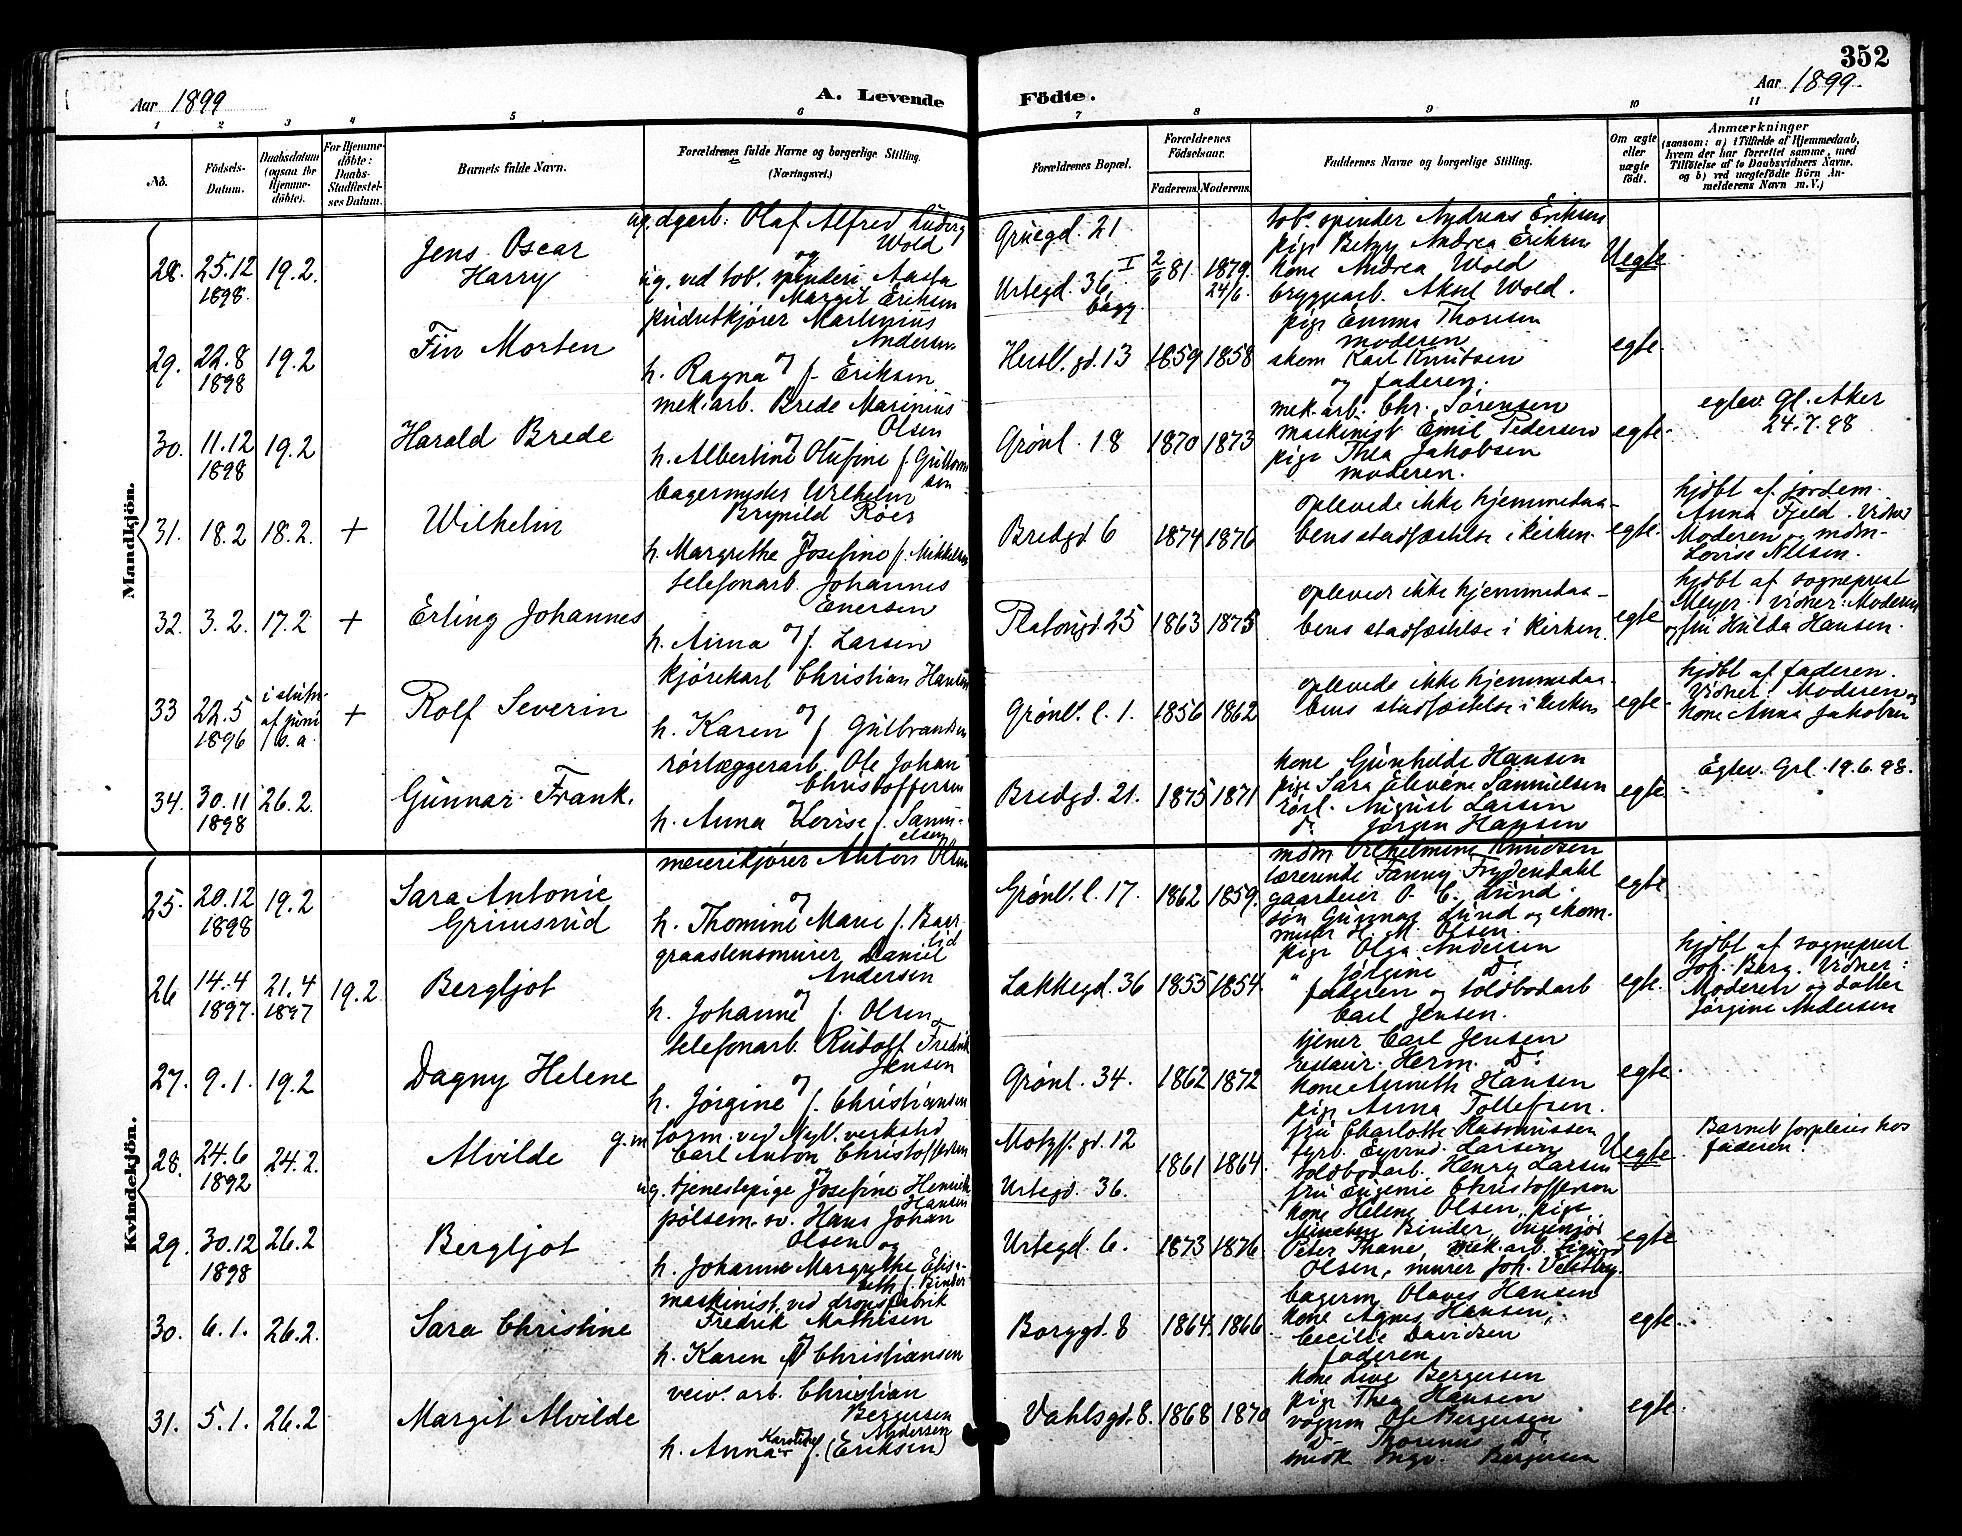 352
Aar 1899
A. Levende Födte.
Aar 1899
1 2 3 4 5 6 7 8 9 10 11
No.
Födsels-Datum.
Daabsdatum (ogsaa for Hjemme-döbte).
For Hjemme-döbte: Daabs-Stadfæstel-ses Datum.
Barnets fulde Navn.
Forældrenes fulde Navne og borgerlige Stilling. (Næringsvei.)
Forældrenes Bopæl.
Forældrenes Födselsaar.
Faderens. Moderens.
Faddernes Navne og borgerlige Stilling.
Om ægte eller uægte födt.
Anmærkninger
(saasom: a) i Tilfælde af Hjemmedaab, hvem der har forrettet samme, med Tilföielse af to Daabsvidners Navne. og b) ved uægtefödte Börn An-melderens Navn m. V.)
Mandkjön.
28. 25.12 1898. 19.2. Jens Oscar Harry
ug. dgarb: Olaf Alfred Ludvig Wold
og
ug. ved tob. spinderi Aasta Margit Eriksen
Gruegd. 21
Urtegd. 36, I bagg.
2/6 81. 1879. 24/6.
tobs spinder Andreas Eriksen
pige Betzy Andrea Eriksen
kone Andrea Wold
bryggearb. Aksel Wold.
Uegte
29. 22.8 1898 19.2 Fin Morten
pudretkjører Martinius Andersen
og
h. Ragna f. Eriksen
Hersl. gd. 13 1859 1858
pige Emma Thoresen
moderen
skom Karl Knutsen
og faderen.
egte.
30. 11.12 1898 19.2 Harald Brede
mek.arb. Brede Marinius Olsen
og
h. Albertine Olufine f.
Grønl. 18 1870 1873
mek.arb. Chr. Sørensen
maskinist Emil Pedersen
pige Thea Jakobsen
moderen.
egte.
egtev. Gl. Aker 24.7.98
31. 18.2 18.2. + Wilhelm
bagermester Wilhelm Brynild Røer
og
h. Margrethe Josefine f. Mikkelsen
Bredgd 6 1874 1876
oplevede ikke hjemmedaa-
bens stadfæstelse i kirken.
egte.
hjdbt af jordem.
Anna Fjeld. Vidner
Moderen og mdm-
Lovise Nilsen.
32. 3.2. 17.2 + Erling Johannes
telefonarb. Johannes Enersen
og
h. Anna f. Larsen
Platougd 25 1863 1875
oplevede ikke hjemmedaa-
bens stadfæstelse i kirken.
egte
hjdbt af sogneprest
Meyer. vidner: Moderen
og fru Hulda Hansen.
33 22.5 1896 i slutn. af juni s.a. + Rolf Severin
kjørekarl Christian Hansen
og
h. Karen f. Gulbrandsen
Grønl. l. 1. 1856 1862
oplevede ikke hjemmedaa-
bens stadfæstelse i kirken
egte.
hjdbt af faderen.
Vidner: Moderen og
kone Anna Jakobsen
34. 30.11 1898 26.2. Gunnar Frank.
rørlæggerarb. Ole Johan Christoffersen
h. Anna Lovise f. Samu-elsen
Bredgd. 21. 1875 1871
kone Gunhilde Hansen
pige Sara Elevine Samuelsen
rørl. August Larsen
do Jørgen Hansen
egte
Egtev. Grl. 19.6.98.
Kvindekjön.
25. 20.12 1898 19.2 Sara Antonie Grimsrud
meierikjører Anton Olsen
og
h. Thomine Marie f.
Grønl. l. 17. 1862 1859.
mdm Vilhelmine Knudsen
lærerinde Fanny Frydendahl
gaardeier O. C. Lund.
søn Gunnar Lund og skom.
mester H. M. Olsen.
egte
26 14.4 1897. 21.4 1897 19.2. Bergljot
graastensmurer Daniel Andersen
og
h. Johanne f. Olsen
Lakkegd. 36 1855 1854.
pige Olga Andersen
" Jørgine Do
faderen og toldbodarb
Carl Jensen.
egte.
hjdbt af sogneprest
Joh. Berg. Vidner:
Moderen og datter
Jørgine Andersen
27. 9.1. 19.2 Dagny Helene
telefonarb. Rudolf Fredrik Jensen
og
h. Jørgine f. Christiansen
Grønl. 34. 1862 1872
tjener Carl Jensen
restaur. Herm. Do
kone Anneth Hansen
pige Anna Tollefsen.
egte
28. 24.6 1892 24.2. Alvilde
g.m. form. ved Nyl. verksted
Carl Anton Christoffersen
og
ug. tjenestepige Josefine Henrik Hansen
Motzf. gd. 12
Urtegd. 36.
1861 1864.
fru Charlotte Rasmussen
fyrb. Eyvind Larsen
toldbodarb. Henry Larsen
fru Eugenie Christofferson
Uegte
Barnet forpleies hos
faderen.
29. 30.12 1898 26.2 Bergljot
pølsem.sv. Hans Johan Olsen og
h. Johanne Margrethe Elisa-beth f. Binder
Urtegd. 6. 1873 1876
kone Helene Olsen, pige
Binder, ingeniør
Peter Thane, mek.arb. Sigurd
Olsen, murer Joh. Vestby.
egte
30. 6.1. 26.2. Sara Christine
maskinist ved dropsfabrik
Fredrik Mathisen
og
h. Karen f. Christiansen
Borggd. 8 1864. 1866
bagerm Olaves Hansen
kone Agnes Hansen,
Cecilie Davidsen
faderen
egte.
31. 5.1. 26.2 Margit Alvilde
veiv. arb. Christian Bergersen
h. Anna Karoline f. (Eriksen) Andersen
Vahlsgd. 8. 1868 1870
kone Live Bergersen
pige Thea Hansen
vognm Ole Bergersen
Do Thorinus Do
smedk Ingv. Bergersen
egte.